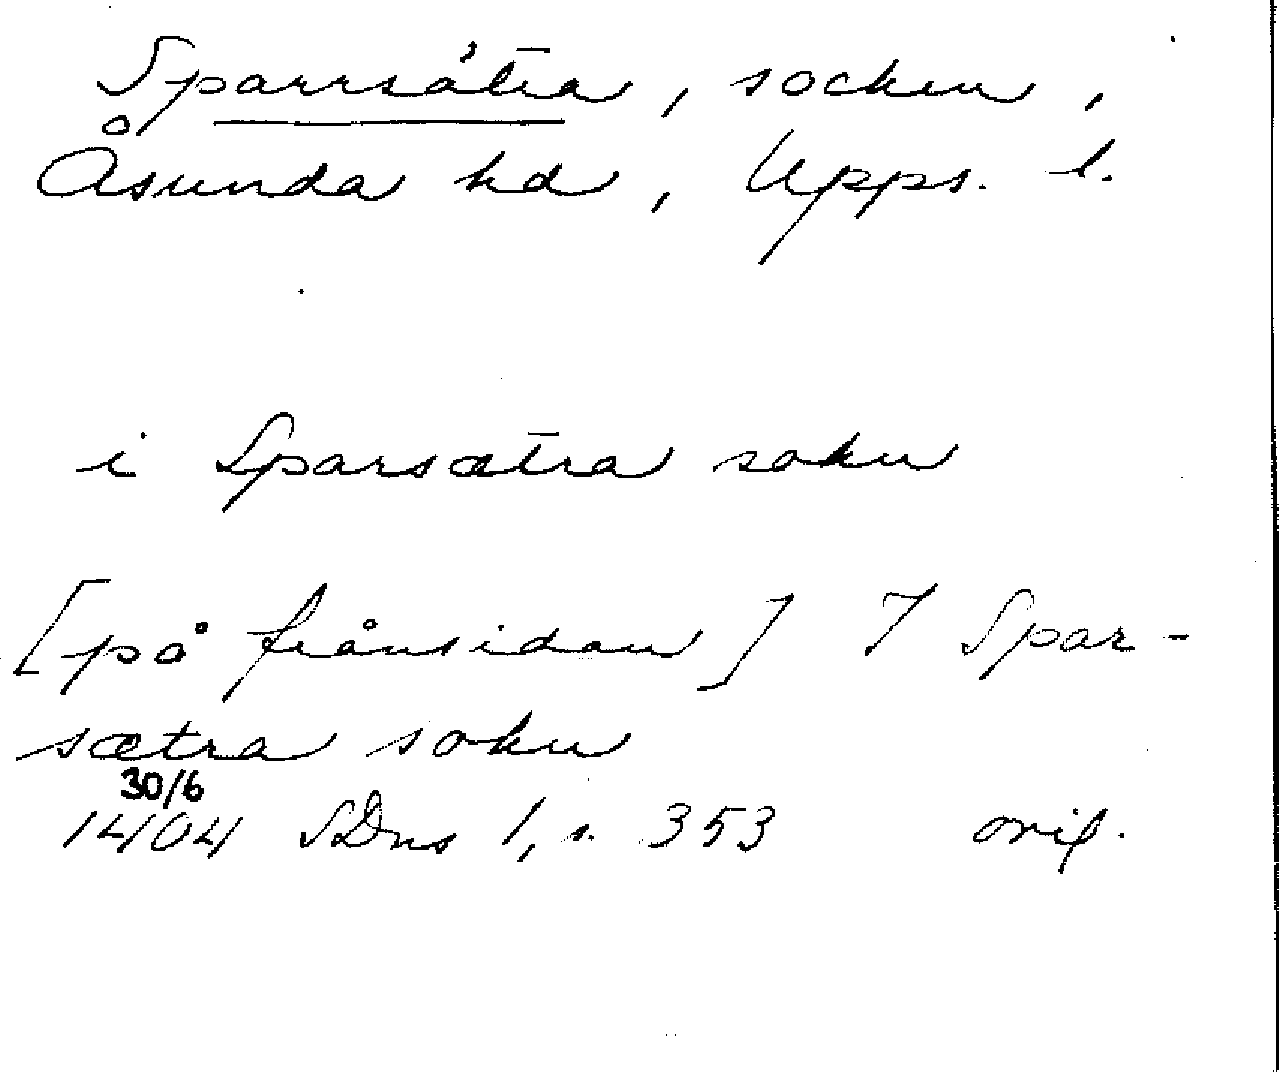 Sparrsätra, socken,
Åsunda hd, Upps. l.
i Sparsætra sokn
[på frånsidan] I Spar-
sætra sokn
30/6
1404 SDns 1, s. 353 orig.